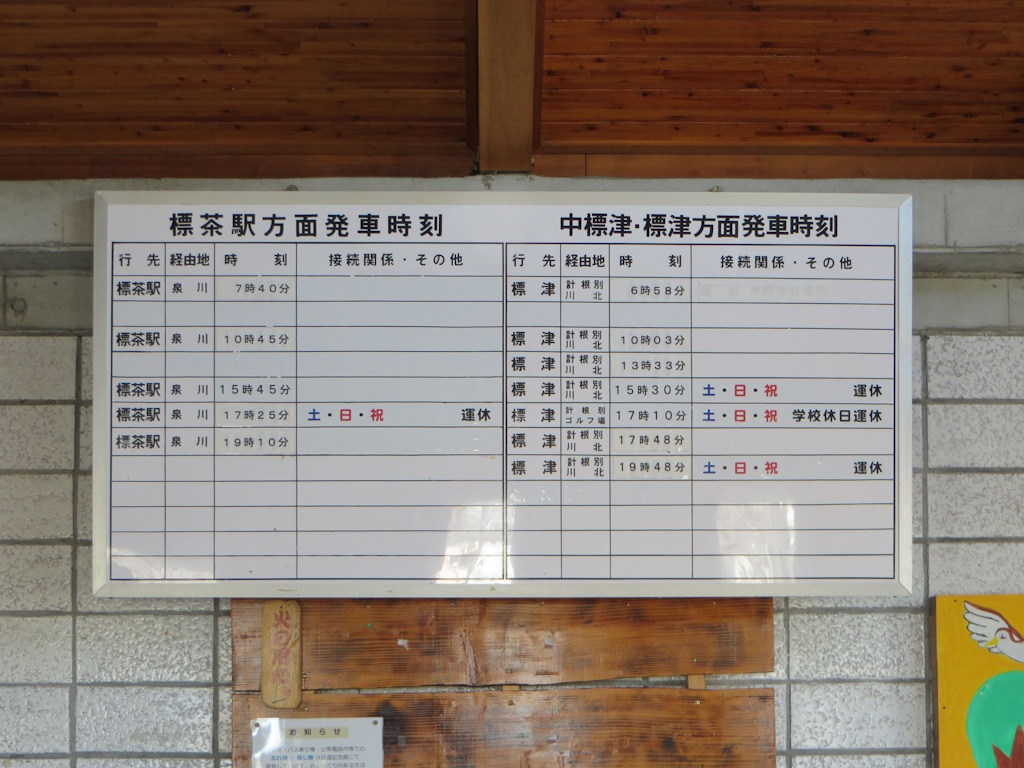 標茶駅方面発車時刻
行先 経由地 時刻 接続関係・その他
標茶駅 泉川 7時40分
標茶駅 泉川 10時45分
標茶駅 泉川 15時45分
標茶駅 泉川 17時25分 土・日・祝 運休
標茶駅 泉川 19時10分
中標津・標津方面発車時刻
行先 経由地 時刻 接続関係・その他
標津 計根別 川北 6時58分
標津 計根別 川北 10時03分
標津 計根別 川北 13時33分
標津 計根別 川北 15時30分 土・日・祝 運休
標津 計根別 ゴルフ場 17時10分 土・日・祝 学校休日運休
標津 計根別 川北 17時48分
標津 計根別 川北 19時48分 土・日・祝 運休
お知らせ